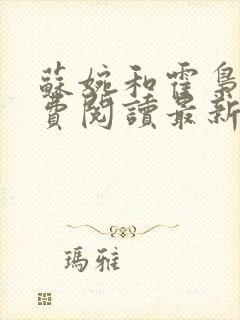 蘇婉和霍梟
費閱讀最新
瑪雅